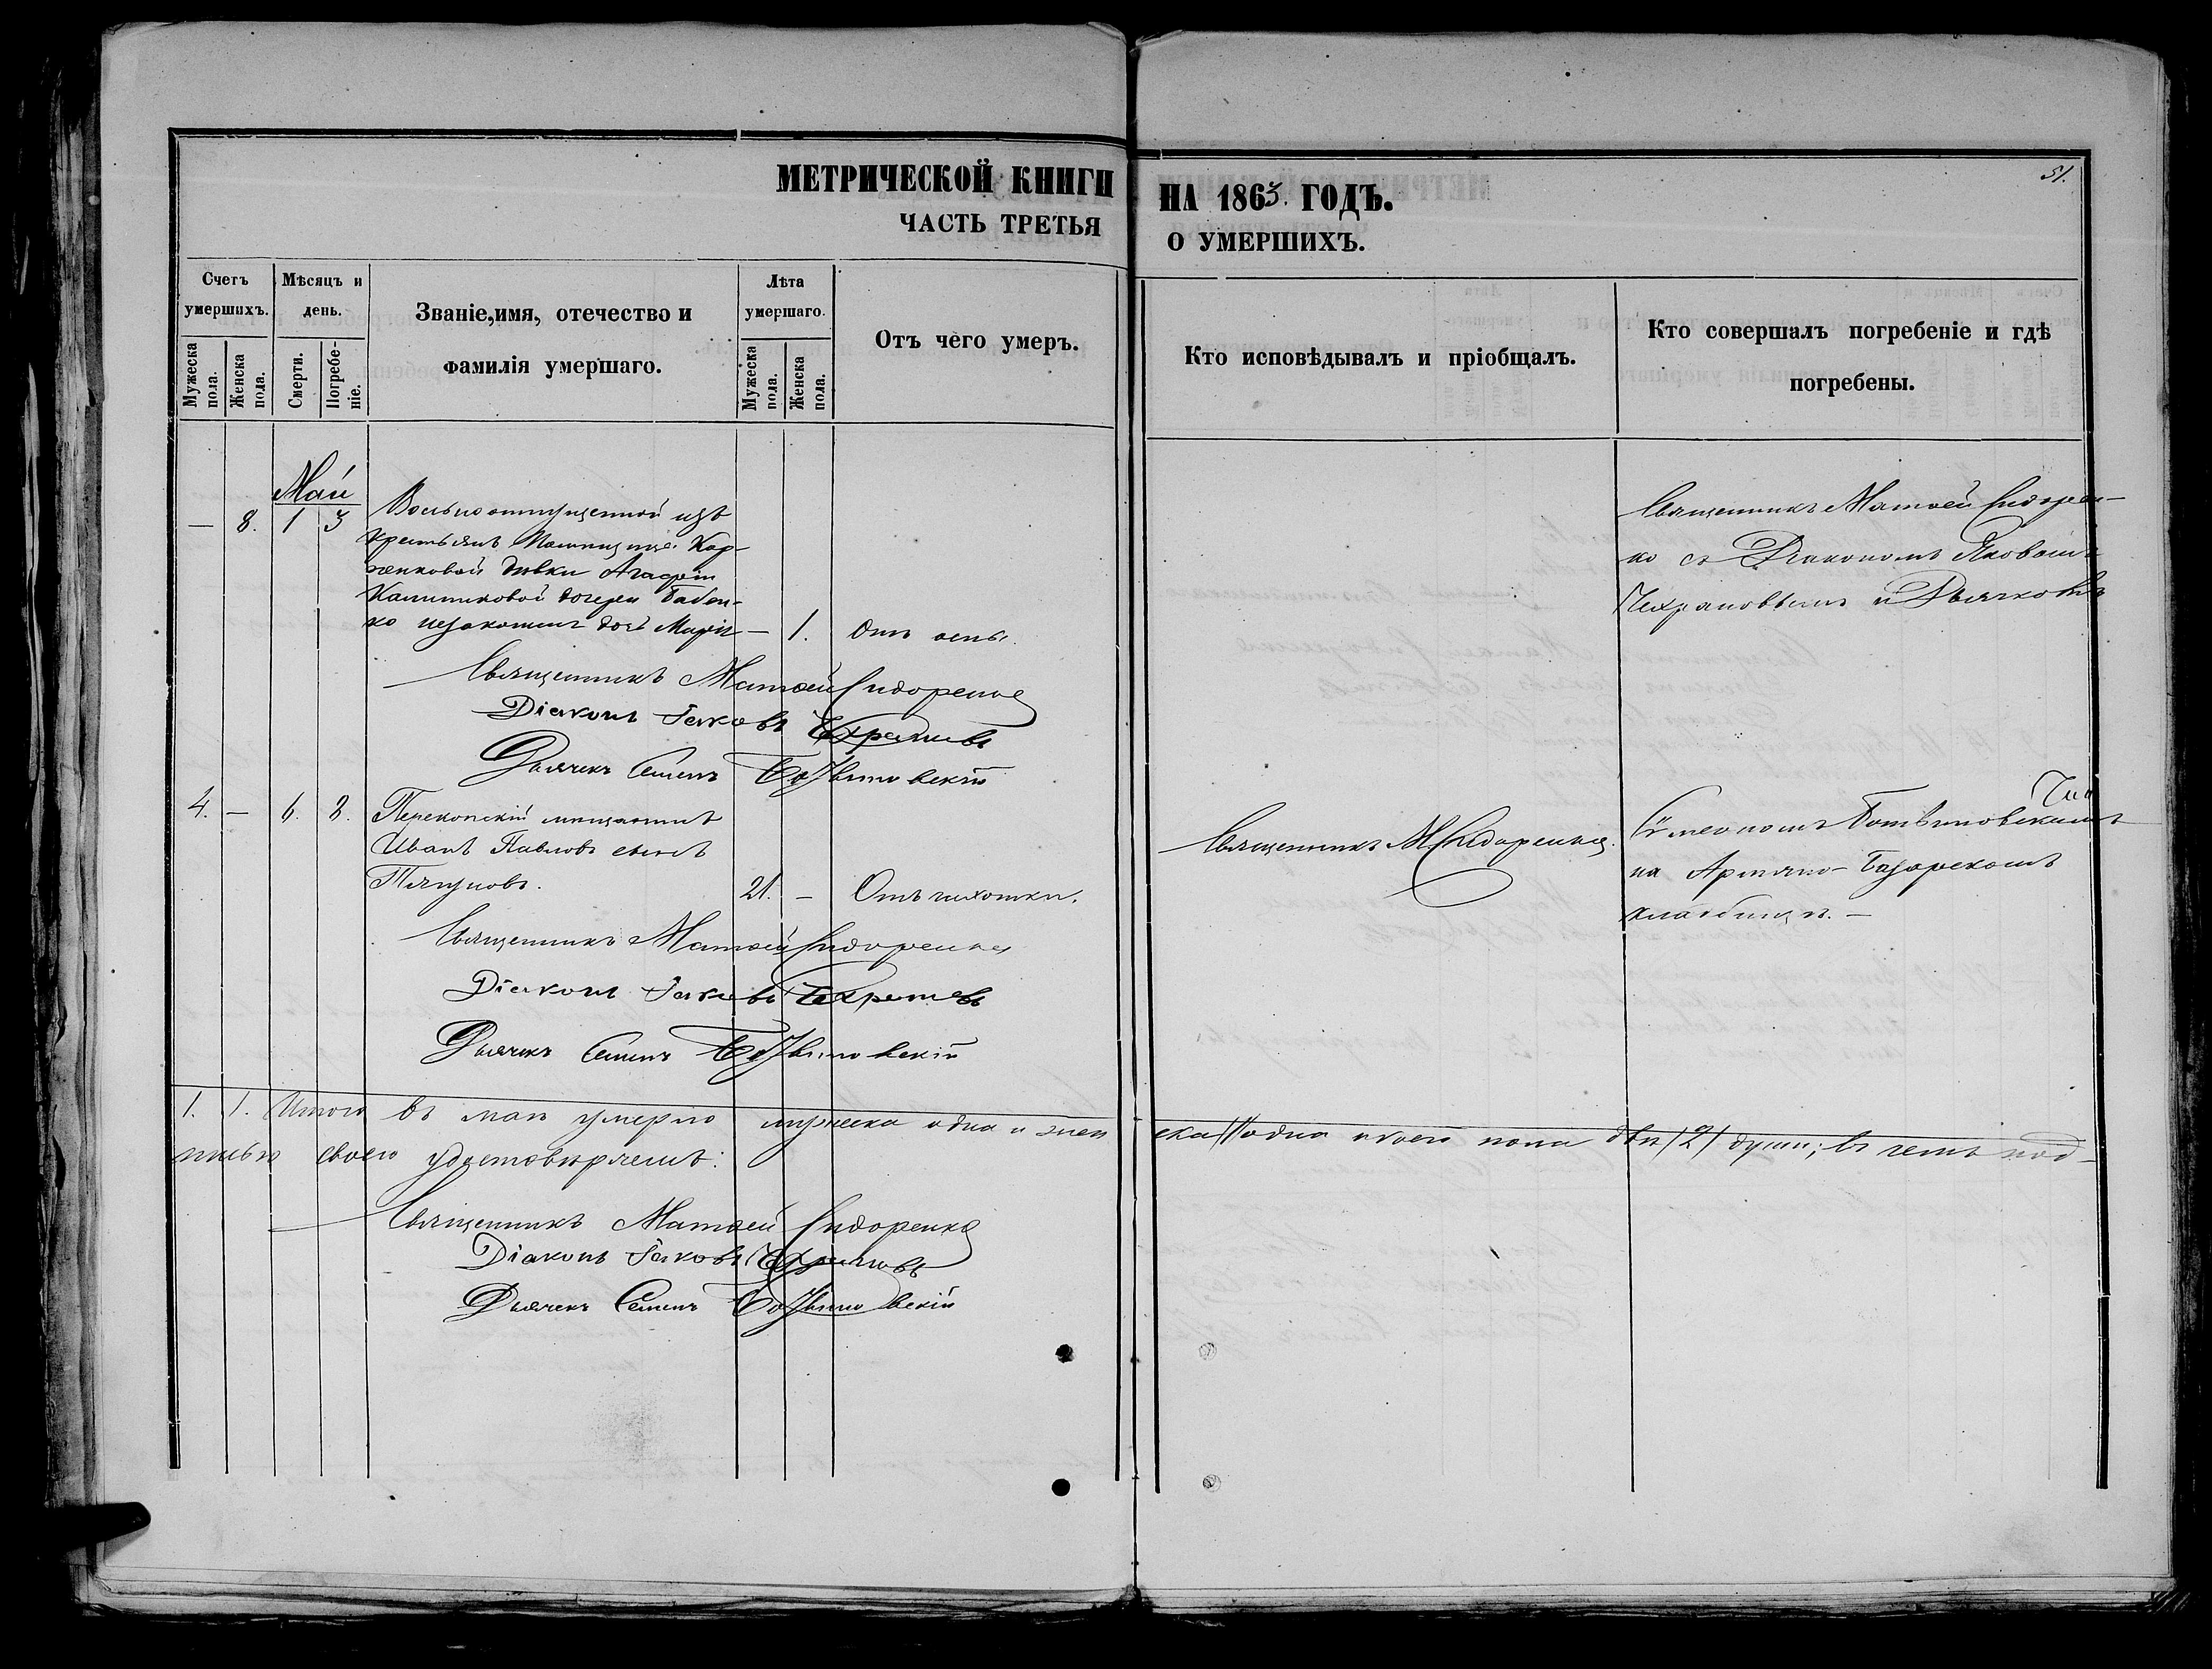 МЕТРИЧЕСКОЙ КНИГИ НА 1863. ГОДЪ.
51.
ЧАСТЬ ТРЕТЬЯ О УМЕРШИХЪ.
Счетъ умершихъ.
Мужеска пола.
Женска пола.
Мѣсяцъ и день.
Смерти.
Погребе-
ніе.
Званіе, имя, отечество и
фамилія умершаго.
Лѣта умершаго.
Мужеска пола.
Женска пола.
Отъ чего умеръ.
Кто исповѣдывалъ и пріобщалъ.
Кто совершалъ погребеніе и гдѣ
погребены.
Май
— 8. 1 3 Вольноотпущенной изъ
крестьянъ Помѣщицы Кор-
ченковой дѣвки Агафіи
дочери Бабен-
ко незаконная дочь Марія — 1. Отъ оспы.
Священникъ Матѳей Сидорен-
ко съ Діакономъ Яковомъ
и Дьячкомъ
Священникъ Матѳей Сидоренко
Діаконъ Іаковъ
Дьячекъ Семенъ Ботвиновскій
4. — 6. 8. Перекопскій мѣщанинъ
Иванъ Павловъ сынъ
21. — Отъ чихотки.
Священникъ М Сидоренко.
Сѵмеономъ Ботвиновскимъ
на Армяно-Базарскомъ
кладбищѣ. —
Священникъ Матѳей Сидоренко
Діаконъ Іаковъ
Дьячекъ Семенъ Ботвиновскій
1. 1. Итого въ маѣ умерло мужеска одна и жен ска одна обоего пола двѣ /2/ души; въ чемъ под-
писью своею удостовѣряемъ:
Священникъ Матѳей Сидоренко
Діаконъ Іаковъ
Дьячекъ Семенъ Ботвиновскій